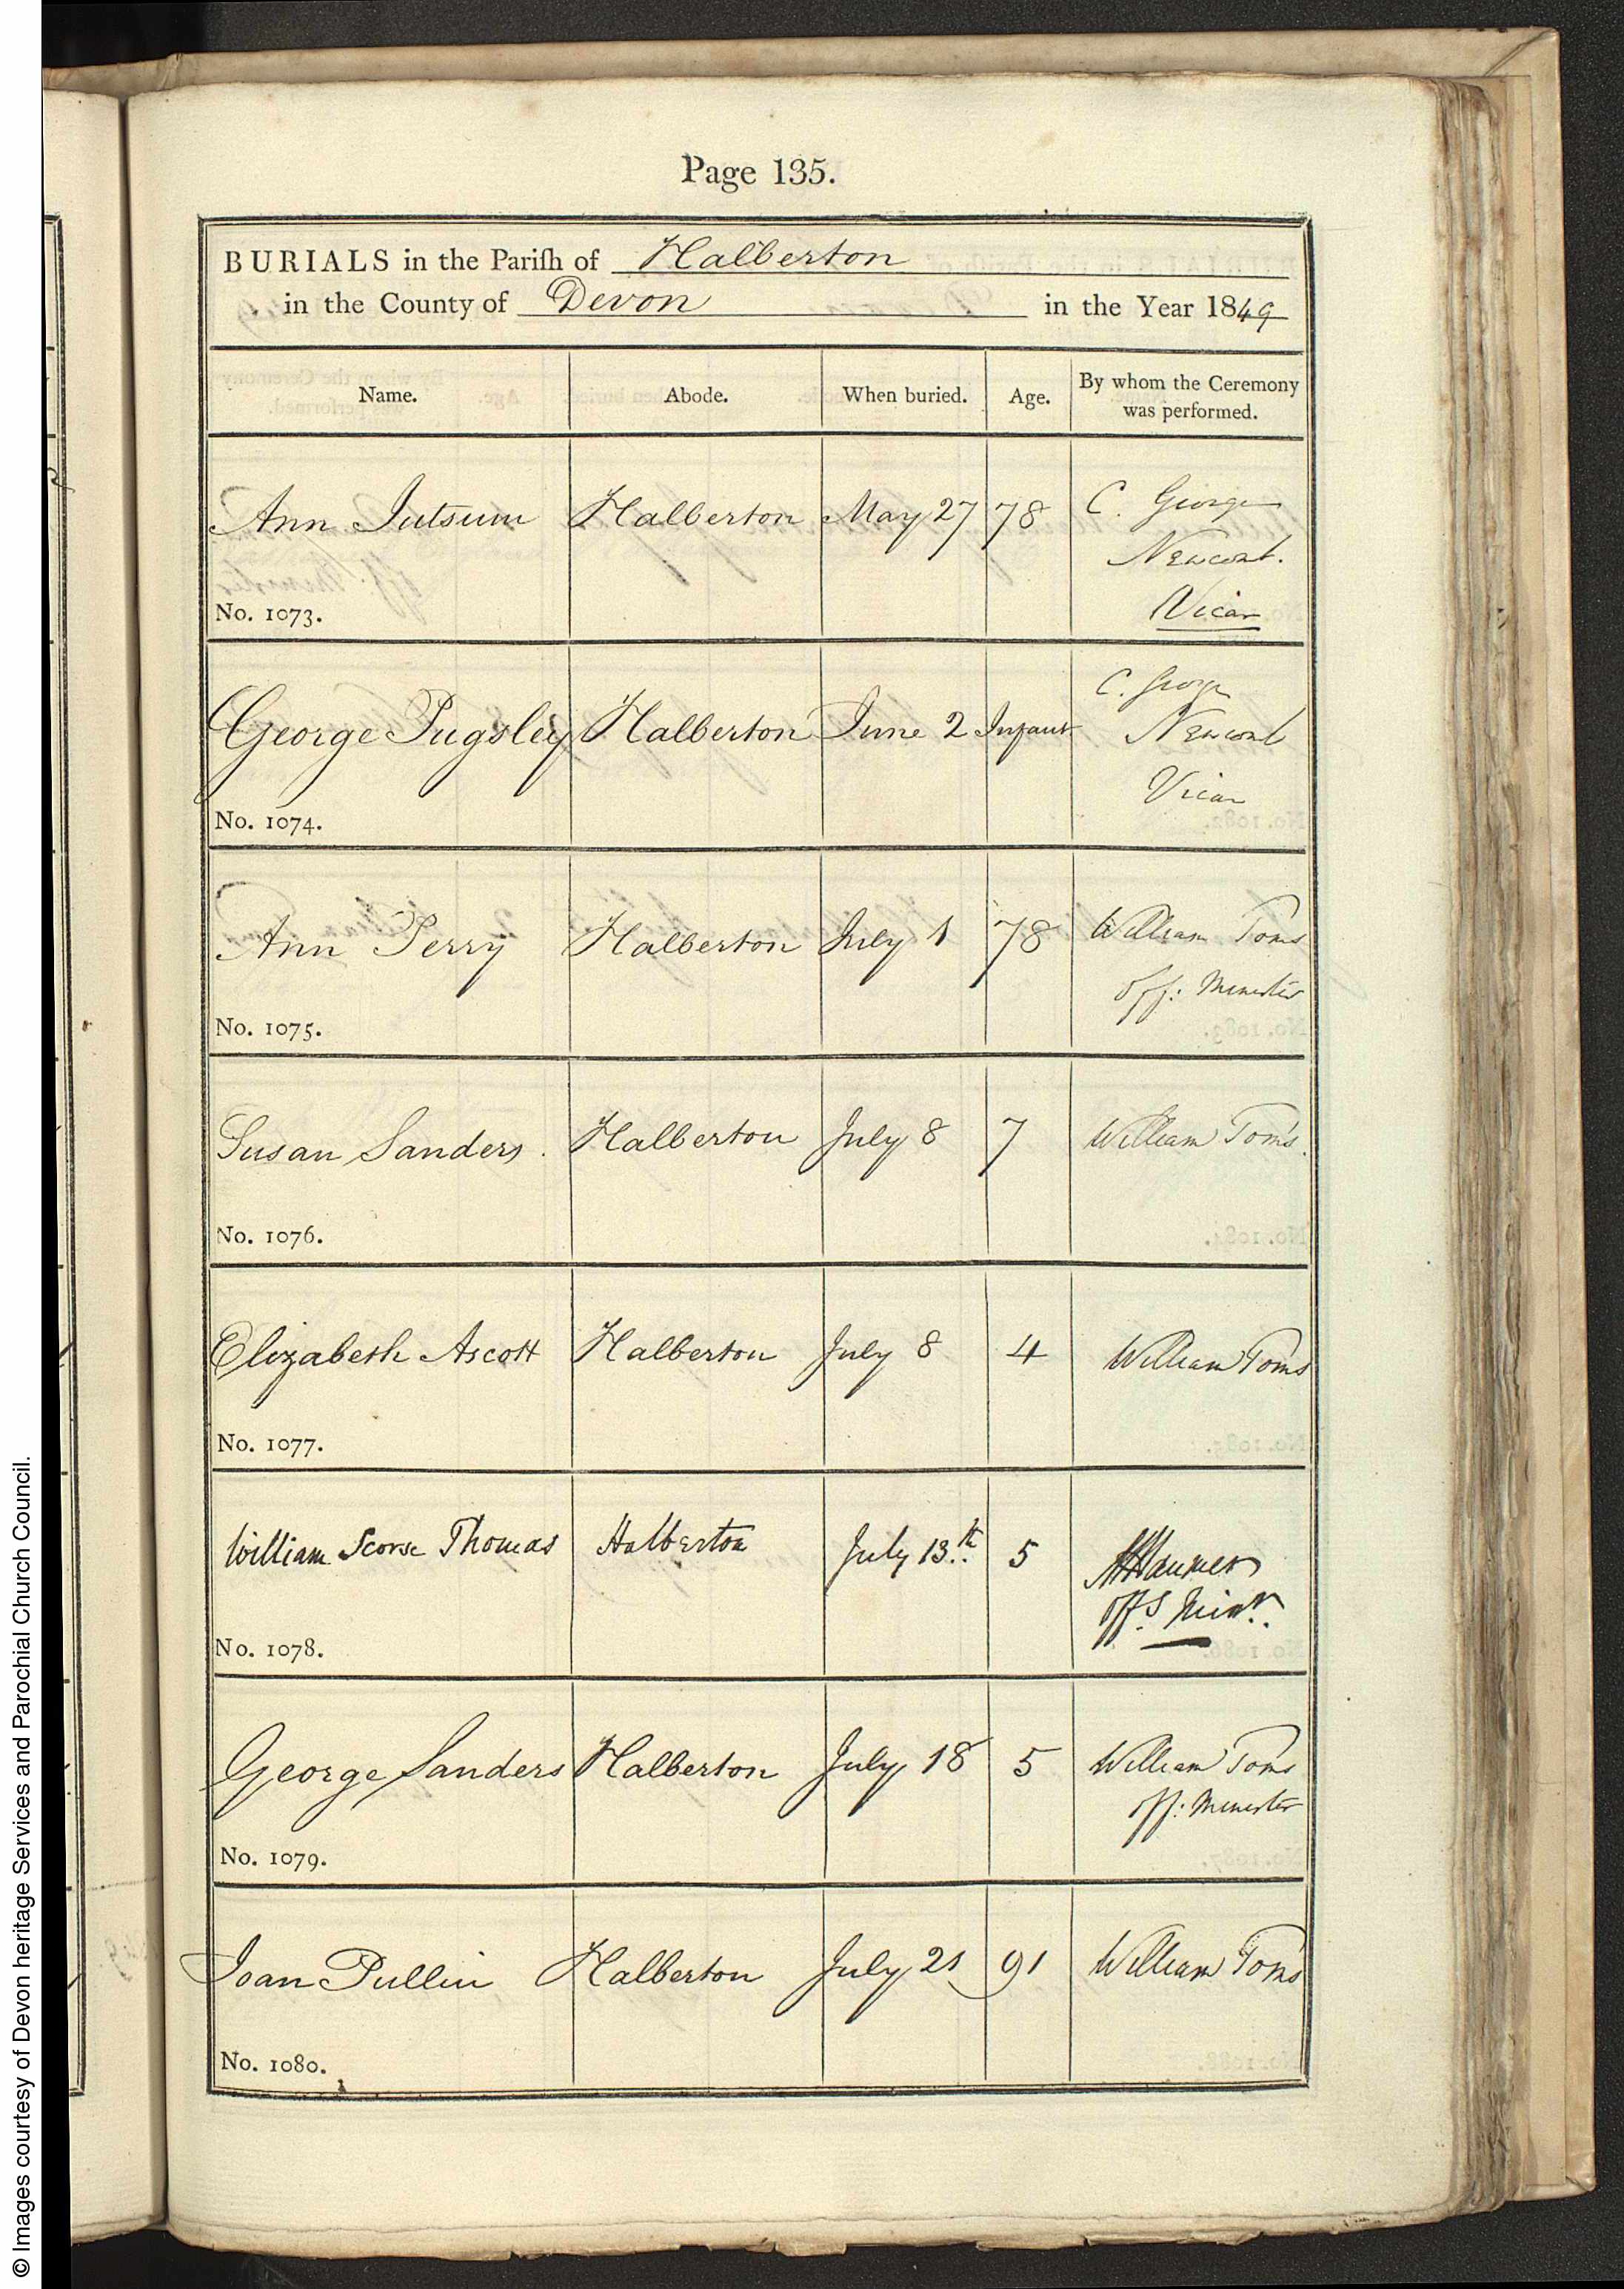 Page 135.
BURIALS in the Pariſh of Halberton
in the County of Devon in the Year 1849
Name. Abode. When buried. Age. By whom the Ceremony was performed.
Ann Jutsum Halberton May 27 78 C. George
Newcomb.
Vicar
No. 1073.
George Pugsley Halberton June 2 Infant C. George
Newcomb
Vicar
No. 1074.
Ann Perry Halberton July 1 78 William Toms
Off: Minister
No. 1075.
Susan Sanders. Halberton July 8 7 William Toms.
No. 1076.
Elizabeth Ascott Halberton July 8 4 William Toms
No. 1077.
William Scorse Thomas Halberton July 13.th 5
Off.g Minr.
No. 1078.
George Sanders Halberton July 18 5 William Toms
Off: Minister
No. 1079.
Joan Pullin Halberton July 21 91 William Toms
No. 1080.
© Images courtesy of Devon heritage Services and Parochial Church Council.